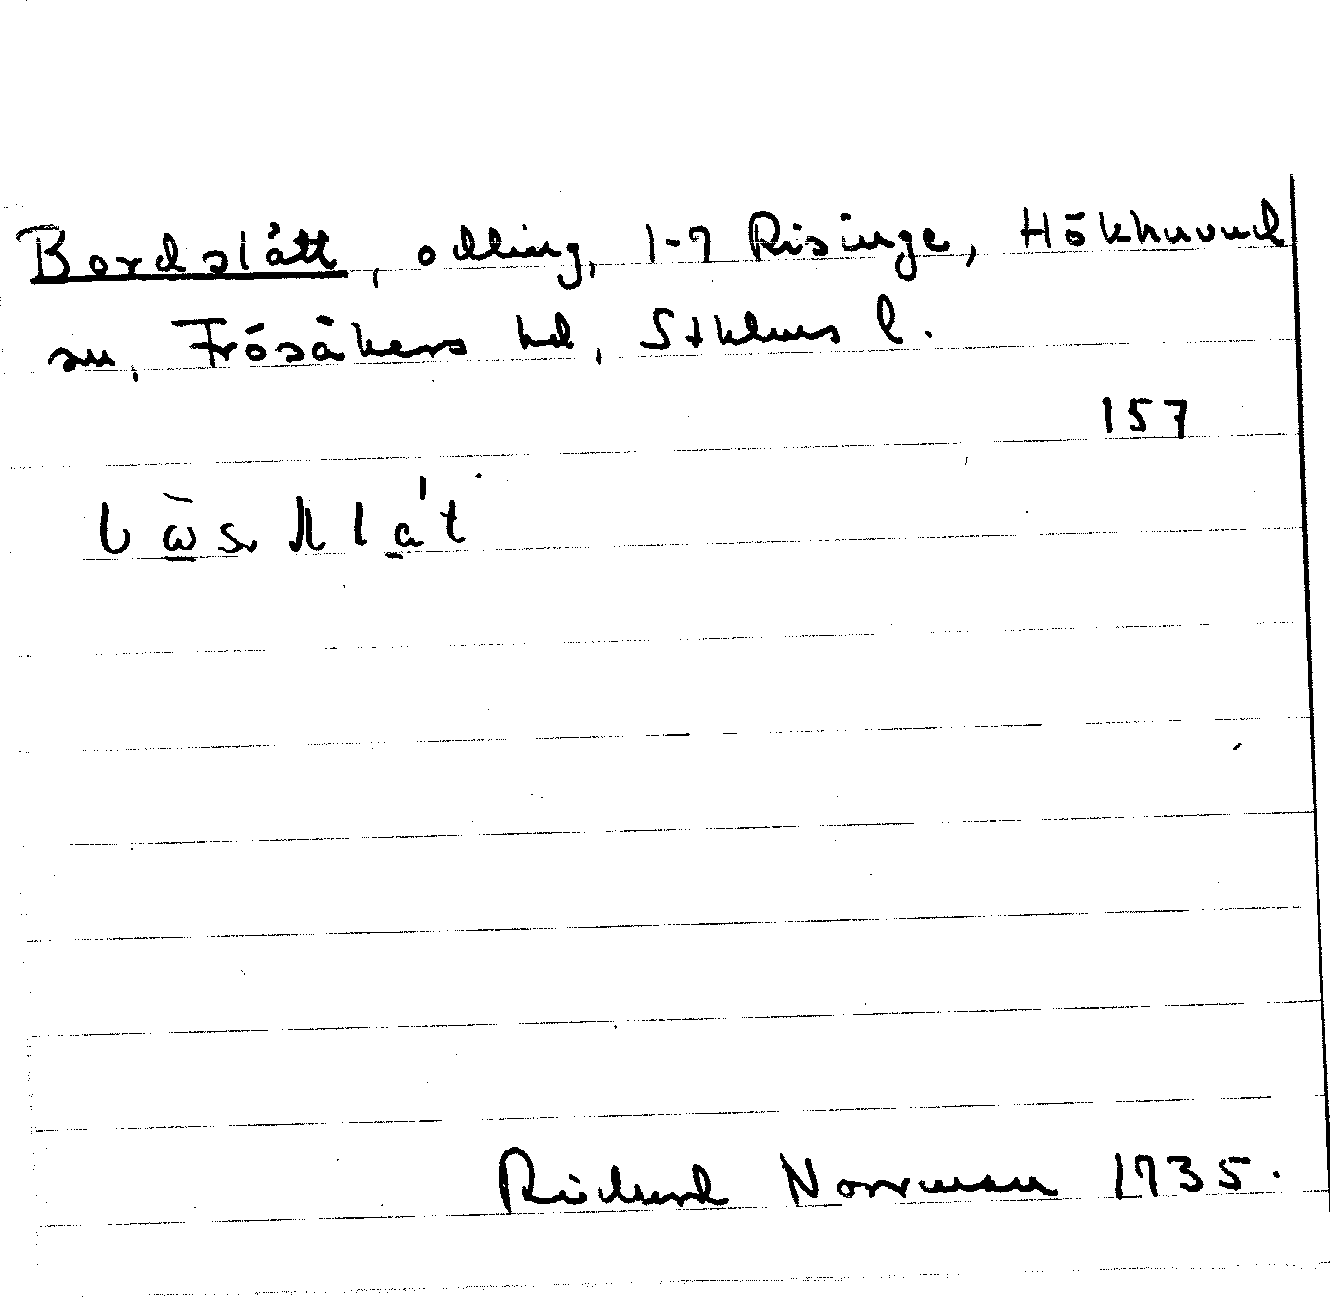 Bordslått, odling, 1-7 Risinge, Hökhuvud
sn, Frösåkers hd, Sthlms l.
157
Rickard Norrman 1935.